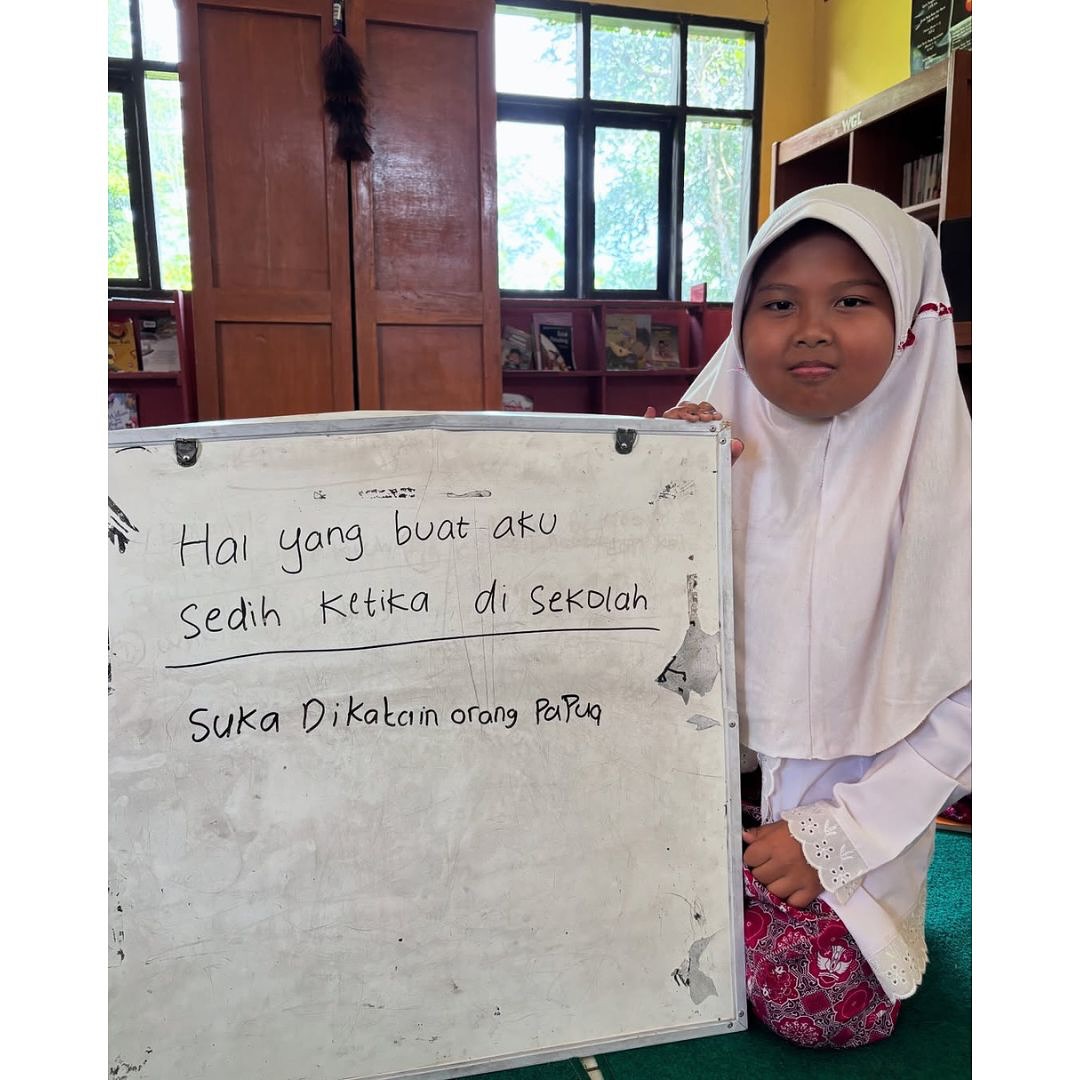 WGL
Hal yang buat aku
sedih ketika di sekolah
Suka Dikatain orang PaPua